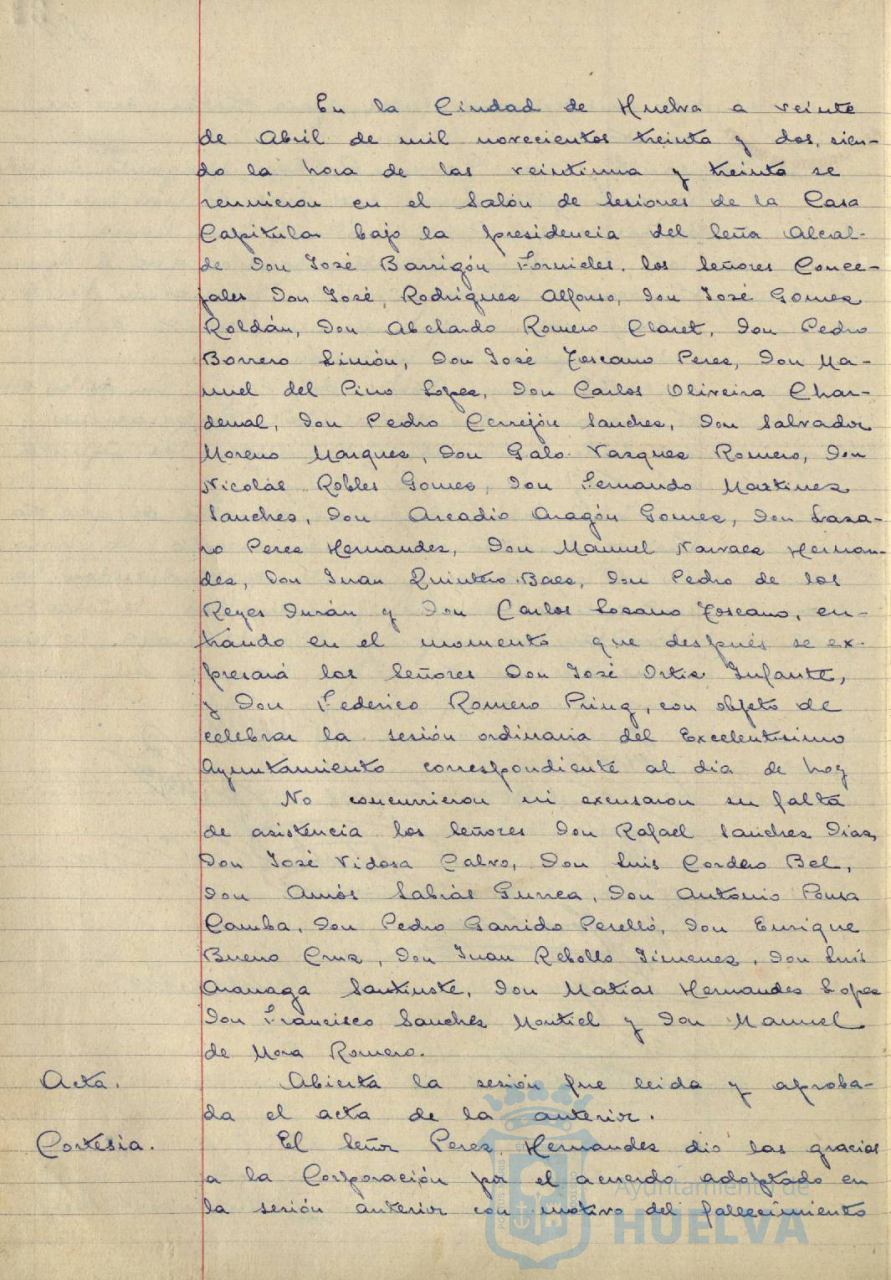 En la Ciudad de Huelva a veinte
de Abril de mil novecientos treinta y dos, sien-
do la hora de las veintiuna y treinta se
reunieron en el Salón de Sesiones de la Casa
Capitular bajo la presidencia del Señor Alcal-
de Don José Barrigón Fornieles, los Señores Conce-
jales Don José, Rodríguez Alfonso, Don José Gomez
Roldán, Don Abelardo Romero Claret, Don Pedro
Borrero Limón, Don José Toscano Perez, Don Ma-
nuel del Pino Lopez, Don Carlos Oliveira Char-
denal, Don Pedro Cerrejón Sanchez, Don Salvador
Moreno Marquez, Don Galo Vazquez Romero, Don
Nicolás Robles Gomez, Don Fernando Martinez
Sanchez, Don Arcadio Aragón Gomez, Don Laza-
ro Perez Hernandez, Don Manuel Narvaez Hernan-
dez, Don Juan Quintero Baez, Don Pedro de los
Reyes Durán y Don Carlos Lozano Toscano, en-
trando en el momento que después se ex-
presará los Señores Don José Ortiz Infante,
y Don Federico Romero Pring, con objeto de
celebrar la sesión ordinaria del Excelentisimo
Ayuntamiento correspondiente al dia de hoy
No concurrieron ni excusaron su falta
de asistencia los Señores Don Rafael Sanchez Diaz,
Don José Vidosa Calvo, Don Luis Cordero Bel,
Don Amós Sabrás Gurrea, Don Antonio Pousa
Camba, Don Pedro Garrido Perelló, Don Enrique
Bueno Cruz, Don Juan Rebollo Jimenez, Don Luis
Aranaga Santiuste, Don Matías Hernandez Lopez
Don Francisco Sanchez Montiel y Don Manuel
de Mora Romero.
Acta. Abierta la sesión fue leida y aproba-
da el acta de la anterior.
Cortesia. El Señor Perez Hernandez dió las gracias
a la Corporación por el acuerdo adoptado en
la sesión anterior con motivo del fallecimiento
Ayuntamiento de
HUELVA